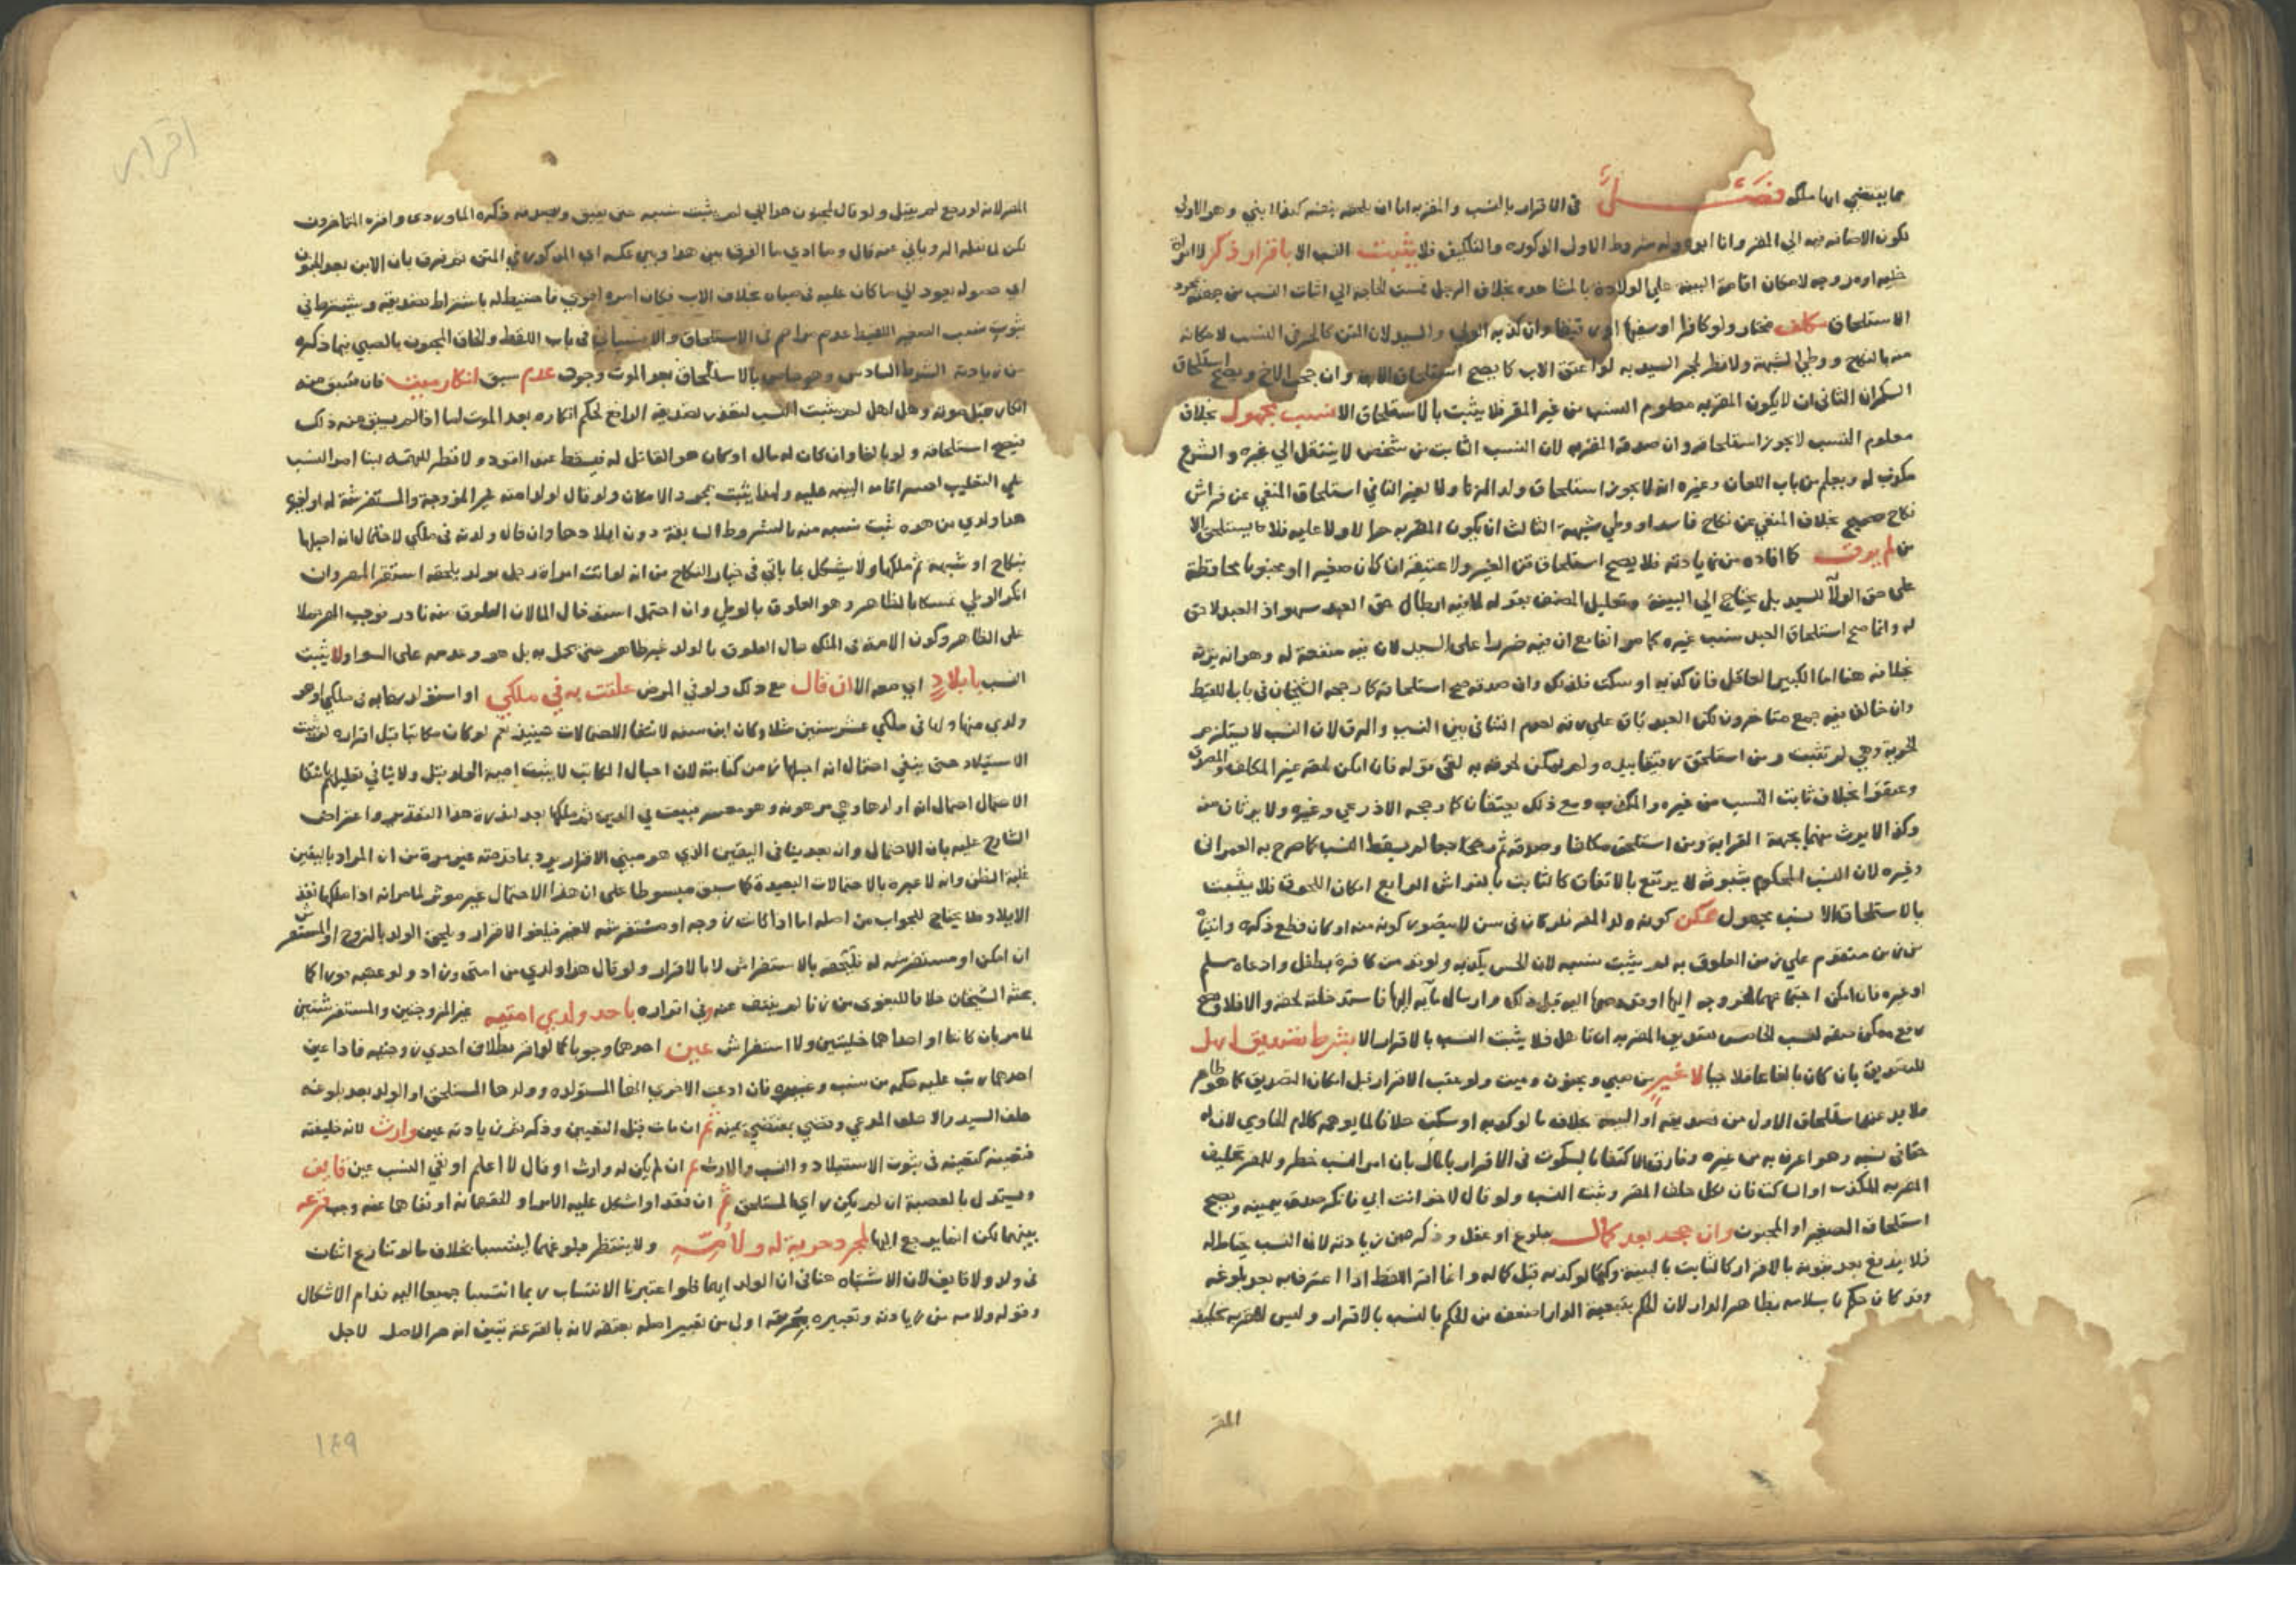 مما يقتضي انها ملكه فصل في الاقرار بالنسب والمقر به اما ان يلحقه بنفسه كهذا ابني وهو الاول
تكون الاضافة فيه الى المقر وانا ابوه وله شروط الاول الذكورة والتكليف فلا يثبت النسب الا باقرار ذكر لا امراة
خلية او مزوجة لامكان اقامة البينة على الولادة بالمشاهدة بخلاف الرجل فمست الحاجة الى اثبات النسب من جهته بمجرد
الاستلحاق مكلف مختار ولو كافرا او سفيها او رقيقا وان كذبه الولي والسيد لان القن كالحر في النسب لامكانه
منه بالنكاح ووطي الشبهة ولا نظر لحجر السيد به لو اعتق الاب كما يصح استلحاق الابن وان حجب الاخ ويصح استلحاق
السكران الثاني ان لا يكون المقر به معلوم النسب من غير المقر فلا يثبت بالاستلحاق الا نسب مجهول بخلاف
معلوم النسب لا يجوز استلحاقه وان صدقه المقر به لان النسب الثابت من شخص لا ينتقل الى غيره والشرع
مكذب له ويعلم من باب اللعان وغيره انه لا يجوز استلحاق ولد الزنا ولا لغير الثاني استلحاق المنفي عن فراش
نكاح صحيح بخلاف المنفي عن نكاح فاسد او وطي شبهة الثالث ان يكون المقر به حرا لا ولا عليه فلا يستلحق الا
من لم يرق كما افاده من زيادته فلا يصح استلحاق قن الغير ولا عتيقه ان كان صغيرا او مجنونا محافظة
على حق الولا للسيد بل يحتاج الى البينة وتعليل المصنف بقوله لما فيه ابطال حق العبد سهو اذ العبد لا حق
له وانما صح استلحاق العبد نسب غيره كما مر انفا مع ان فيه ضررا على السيد لان فيه منفعة له وهو انه يرثه
بخلافه هنا اما الكبير العاقل فان كذبه او سكت فكذلك وان صدقه صح استلحاقه كما رجحه الشيخان في باب اللقيط
وان خالف فيه جمع متاخرون لكن العبد باق على رقه لعدم التنافي بين النسب والرق لان النسب لا يستلزم
الحرية وهي لم تثبت ومن استلحق رقيقا بيده ولم يمكن لحوقه به لغى قوله فان امكن لحقه غير المكلف والمصدق
وعتقوا بخلاف ثابت النسب من غيره والمكذب ومع ذلك يعتقان كما رجحه الاذرعي وغيره ولا يرثان منه
وكذا لا يورث منهما بجهة القرابة ومن استلحق مكلفا وصدقه ثم رجعا لم يسقط النسب كما صرح به العمراني
وغيره لان النسب المحكوم بثبوته لا يرتفع بالاتفاق كالثابت بالفراش الرابع امكان اللحوق فلا يثبت
بالاستلحاق الا نسب مجهول ممكن كونه ولد المقر فلو كان في سن لا يتصور كونه منه او كان قطع ذكره وانثياه
من زمن متقدم على زمن العلوق به لم يثبت نسبه لان الحس يكذبه ولو قدمت كافرة بطفل وادعاه مسلم
او غيره فان امكن اجتماعهما بخروجه اليها او قدومها اليه قبل ذلك او ارسال مائه اليها فاستدخلته لحقه والا فلا ومع
ممكن صفة لنسب الخامس تصديق المقر به ان تاهل فلا يثبت النسب بالاقرار الا بشرط تصديق اهل
للتصديق بان كان بالغا عاقلا حيا لا غير من صبي ومجنون وميت ولو عقب الاقرار قبل امكان التصديق كما هو ظاهر
فلا بد عند استلحاق الاول من تصديقه او البينة بخلاف ما لو كذبه او سكت خلافا لما يوهمه كلام الحاوي لان له
حقا في نسبه وهو اعرف به من غيره وفارق الاكتفاء بالسكوت في الاقرار بالمال بان امر النسب خطر وللمقر تحليف
المقر به المكذب او الساكت فان نكل حلف المقر وثبت النسب ولو قال لاخر انت ابي فانكر صدق بيمينه ويصح
استلحاق الصغير او المجنون وان جحد بعد كمال ببلوغ او عقل وذكر هذين من زيادته لان النسب يحتاط له
فلا يندفع بعد ثبوته بالاقرار كالثابت بالبينة وكما لو كذبه قبل كماله وانما اقر اللقط اذا اعترف به بعد بلوغه
وقد كان حكم باسلامه بظاهر الدار لان الحكم بتبعية الدار اضعف من الحكم بالنسب بالاقرار وليس للمقر به تحليف
المقر
اقرار
المقر لانه لو رجع لم يقبل ولو قال لمجنون هذا ابي لم يثبت نسبه حتى يفيق ويصدقه ذكره الماوردي واقره المتاخرون
لكن لما نقله الروياني عنه قال وما ادري ما الفرق بين هذا وبين عكسه اي المذكور في المتن ثم فرق بان الابن بعد الجنون
اي حصوله يعود الى ما كان عليه في صباه بخلاف الاب فكان امره اقوى فاحتيط له باشتراط تصديقه ويشترط في
ثبوت نسب الصغير اللقيط عدم مزاحم في الاستلحاق والا فسياتي في باب اللقط والحاق المجنون بالصبي فيما ذكره
من زيادته الشرط السادس وهو خاص بالاستلحاق بعد الموت وجود عدم سبق انكار ميت فان سبق منه
انكار قبل موته وهل اهل لم يثبت النسب لتعذر تصديقه الرافع لحكم انكاره بعد الموت اما اذا لم يسبق منه ذلك
فيصح استلحاقه ولو بالغا وان كان له مال او كان هو القاتل له فيسقط عنه القود ولا نظر للتهمة لبنا امر النسب
على التغليب لعسر اقامة البينة عليه ولهذا يثبت بمجرد الامكان ولو قال لولد امته غير المزوجة والمستفرشة له او لغيره
هذا ولدي من هذه ثبت نسبه منه بالشروط السابقة دون ايلادها وان قال ولدته في ملكي لاحتمال انه احبلها
بنكاح او شبهة ثم ملكها ولا يشكل بما ياتي في خيار النكاح من انه لو اتت امراة رجل بولد يلحقه استقر المهر وان
انكر الوطي تمسكا بالظاهر وهو العلوق بالوطي وان احتمل استدخال الما لان العلوق منه نادر فوجب المهر عملا
على الظاهر وكون الامة في الملك حال العلوق بالولد غير ظاهر حتى يحكم به بل هو وعدمه على السوا ولا يثبت
النسب بايلاد اي معه الا ان قال مع ذلك ولو في المرض علقت به في ملكي او استولدتها به في ملكي او هو
ولدي منها ولها في ملكي عشر سنين مثلا وكان ابن سنة لانتفا الاحتمالات حينئذ نعم لو كان مكاتبا قبل اقراره لم يثبت
الاستيلاد حتى ينفي احتمال انه احبلها زمن كتابته لان احبال المكاتب لا يثبت امية الولد قبل ولا ينافي تعليلهم
الاحتمال احتمال انه اولدها وهي مرهونة وهو معسر فبيعت في الدين ثم ملكها بعد لندرة هذا التقدير واعتراض
الشارح عليه بان الاحتمال وان بعد ينافي اليقين الذي هو مبني الاقرار يرد بما قدمته غير مرة من ان المراد باليقين
غلبة الظن وانه لا عبرة بالاحتمالات البعيدة كما سبق مبسوطا على ان هذا الاحتمال غير موثر لما مر انه اذا ملكها نفذ
الايلاد فلا يحتاج للجواب من اصله اما اذا كانت زوجة او مستفرشة لغير فيلغو الاقرار ويلحق الولد بالزوج او المستفرش
ان امكن او مستفرشة له فلحقه بالاستفراش لا بالاقرار ولو قال هذا ولدي من امتي زنا ولو عقبه فورا كما
بحثه الشيخان خلافا للبغوي من زنا لم ينتف عنه وفي اقراره باحد ولدي امتيه غير المزوجتين والمستفرشتين
لما مر بان كانتا او احداهما خليتين ولا استفراش عين احدهما وجوبا كما لو اقر بطلاق احدى زوجتيه فاذا عين
احدهما رتب عليه حكمه من نسب وغيره فان ادعت الاخرى انها المستولدة وولدها المستلحق او الولد بعد بلوغه
حلف السيد والا حلف المدعي وقضي بمقتضى يمينه ثم ان مات قبل التعيين وذكر ثم من زيادته عين وارث لانه خليفته
فتعيينه كتعيينه في ثبوت الاستيلاد والنسب والارث ثم ان لم يكن له وارث او قال لا اعلم او نفي النسب عين قايف
ويستدل بالعصبة ان لم يكن راى المستلحق ثم ان فقد او اشكل عليه الامر او الحقهما به او نفاهما عنه وجب قرعة
بينهما لكن انما يرجع اليها لمجرد حرية له ولامه ولا ينتظر بلوغهما لينتسبا بخلاف ما لو تنازع اثنان
في ولد ولا قايف لان الاشتباه هنا في ان الولد ايهما فلو اعتبرنا الانتساب ربما انتسبا جميعا اليه فدام الاشكال
وقوله ولامه من زيادته وتعبيره بحرية اولى من تعبير اصله بعتقه لانه بالقرعة تبين انه حر الاصل لاجل
١٤٩